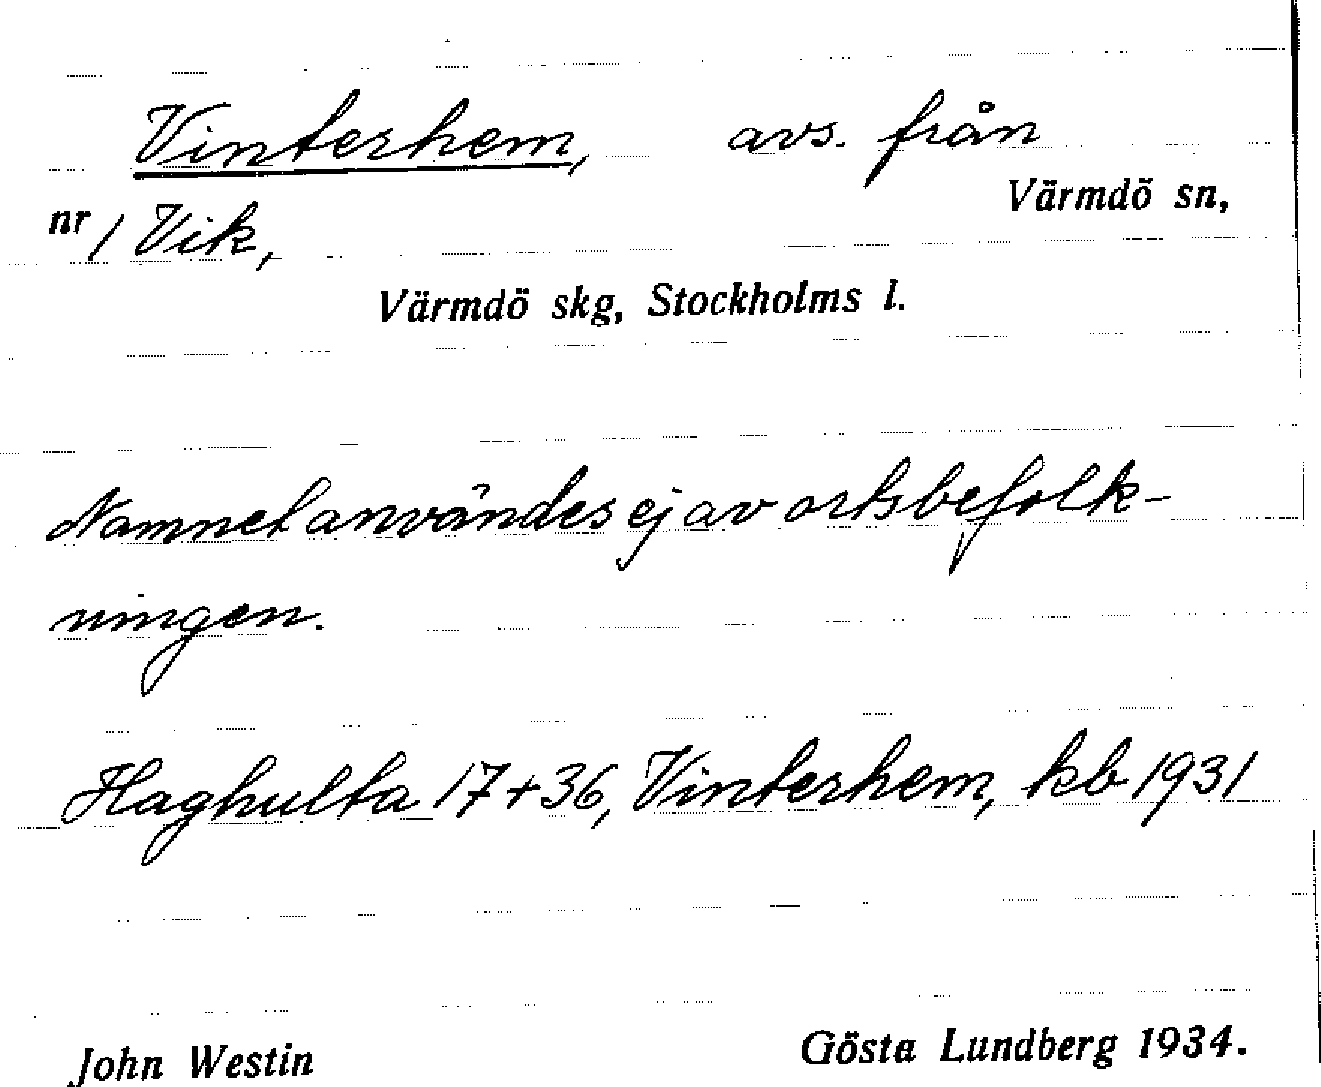 Vinterhem, avs. från
Värmdö sn,
nr 1 Vik,
Värmdö skg, Stockholms l.
Namnet användes ej av ortsbefolk-
ningen.
Haghulta 17+36, Vinterhem, kb 1931
John Westin Gösta Lundberg 1934.